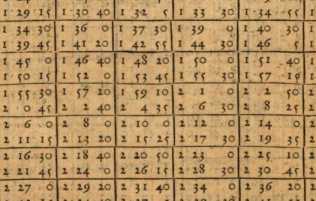 1 29 15 1 30 40 1 32 5 1 33 30 1 34 55
1 34 30 1 36 0 1 37 30 1 39 0 1 40 30
1 39 45 1 41 20 1 42 55 1 44 30 1 46
1 45 0 1 46 40 1 48 20 1 50 0 1 51 40
1 50 15 1 52 0 1 53 45 1 55 30 1 57 15
1 55 30 1 57 20 1 59 10 2 1 0 2 2 50
2 0 45 2 2 40 2 4 35 2 6 30 2 8 25
2 6 0 2 8 0 2 10 0 2 12 0 2 14 0
2 11 15 2 13 20 2 15 25 2 17 30 2 19 35
2 16 30 2 18 40 2 20 50 2 23 0 2 25 10
2 21 45 2 24 0 2 26 15 2 28 30 2 30 45
2 27 0 2 29 20 2 31 40 2 34 0 2 36 20